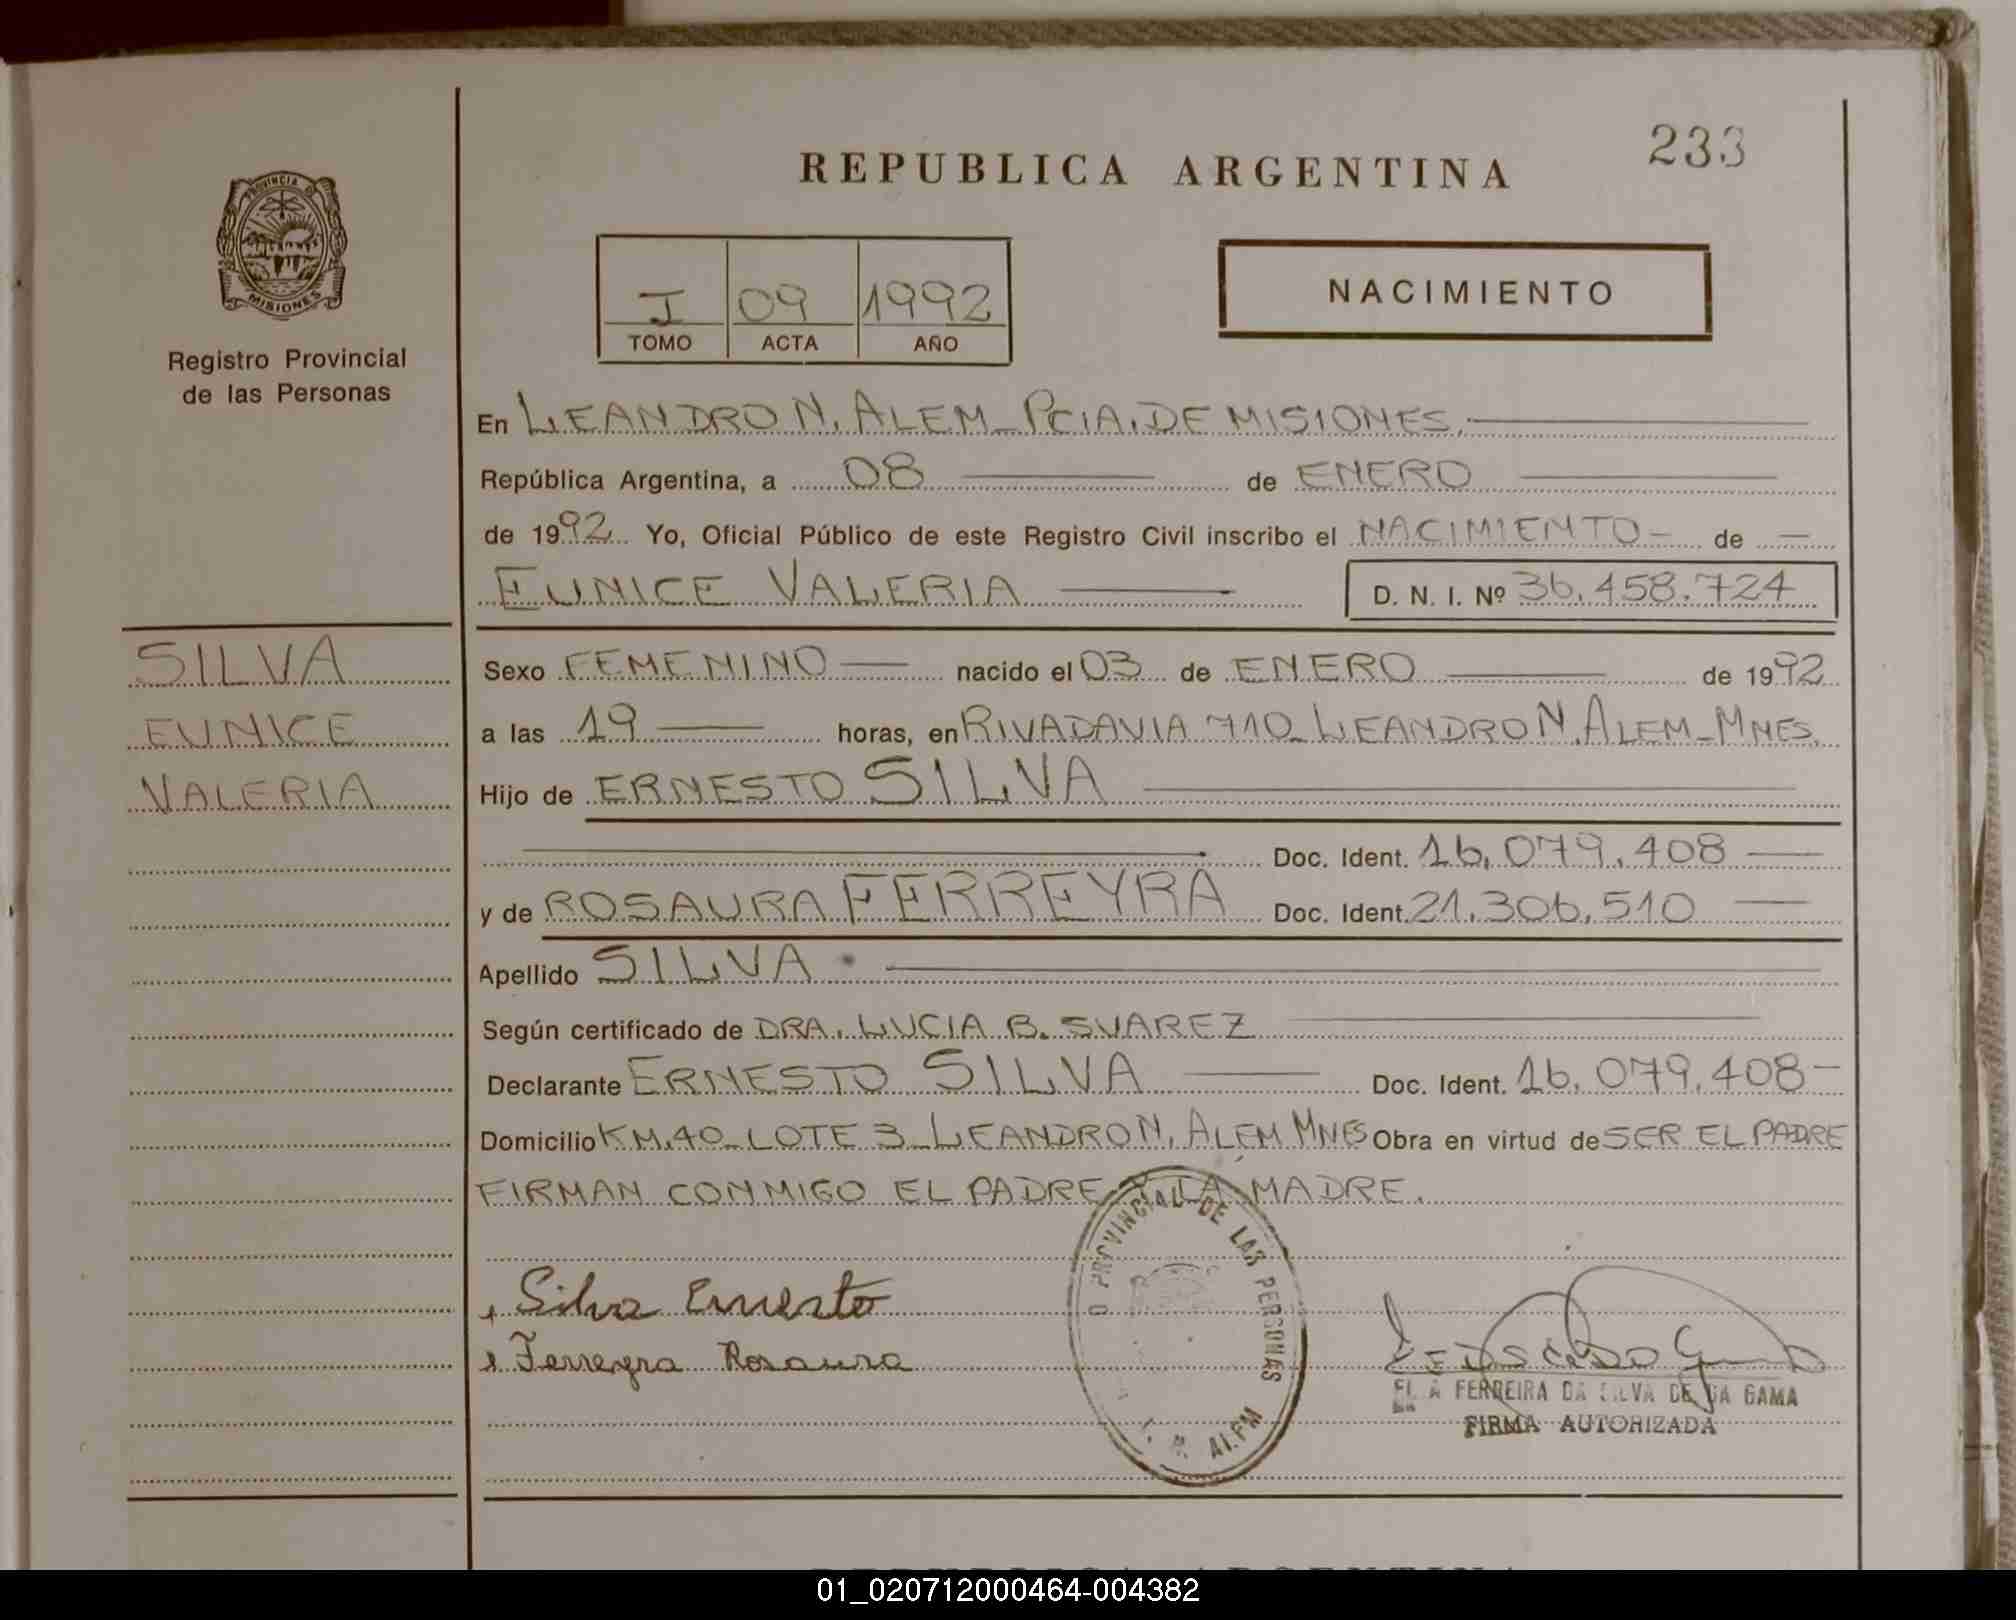 233
REPUBLICA ARGENTINA
PROVINCIA DE
MISIONES
Registro Provincial
de las Personas
I 09 1992
TOMO ACTA AÑO
NACIMIENTO
En LEANDRO N. ALEM_PCIA. DE MISIONES.
República Argentina, a 08 de ENERO
de 1992 Yo, Oficial Público de este Registro Civil inscribo el NACIMIENTO - de -
EUNICE VALERIA D. N. I. Nº 36.458.724
SILVA
EUNICE
VALERIA
Sexo FEMENINO nacido el 03 de ENERO de 1992
a las 19 horas, en RIVADAVIA 710_LEANDRO N. ALEM_MNES.
Hijo de ERNESTO SILVA
Doc. Ident. 16.079.408
y de ROSAURA FERREYRA Doc. Ident. 21.306.510
Apellido SILVA.
Según certificado de DRA. LUCIA B. SUAREZ
Declarante ERNESTO SILVA Doc. Ident. 16.079.408-
Domicilio KM.40_LOTE 3_LEANDRO N. ALEM MNES Obra en virtud de SER EL PADRE
FIRMAN CONMIGO EL PADRE Y LA MADRE.
O PROVINCIAL DE LAS PERSONAS
ALEM
Silva Ernesto
Ferreyra Rosaura
FERREIRA DA SILVA DE DA GAMA
FIRMA AUTORIZADA
REPUBLICA ARGENTINA
01_020712000464-004382